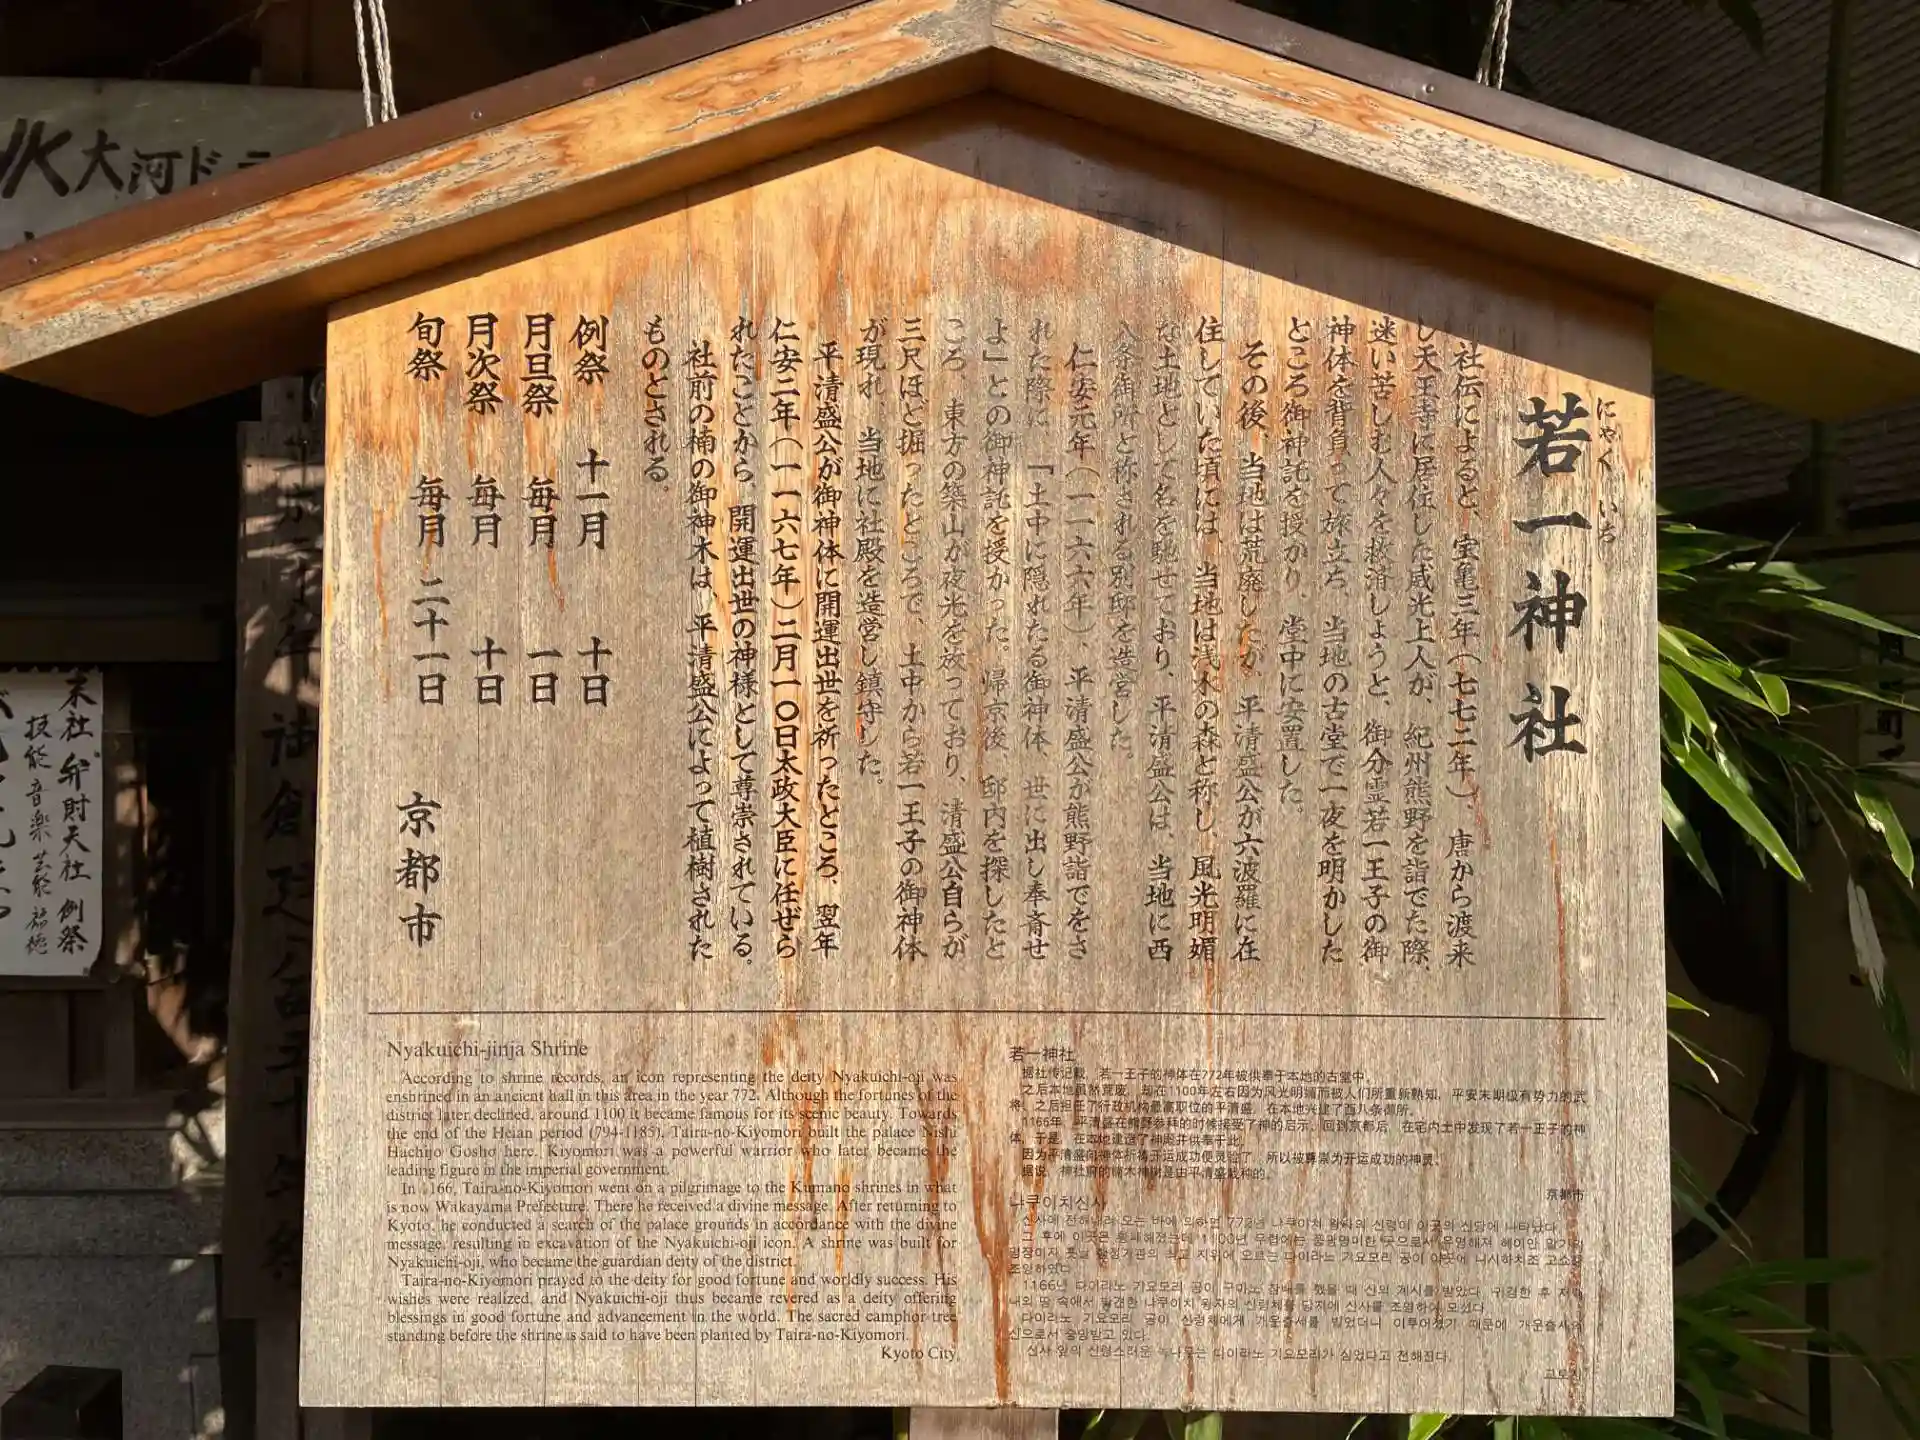 若一神社
にゃく いち
社伝によると、宝亀三年(七七二年)、唐から渡来
し天王寺に居住した威光上人が、紀州熊野を詣でた際、
迷い苦しむ人々を救済しようと、御分霊若一王子の御
神体を背負って旅立ち、当地の古堂で一夜を明かした
ところ御神託を授かり、堂中に安置した。
その後、当地は荒廃したが、平清盛公が六波羅に在
住していた頃には、当地は浅水の森と称し、風光明媚
な土地として名を馳せており、平清盛公は、当地に西
八条御所と称される別邸を造営した。
仁安元年(一一六六年)、平清盛公が熊野詣でをさ
れた際に、「土中に隠れたる御神体、世に出し奉斎せ
よ」との御神託を授かった。帰京後、邸内を探したと
ころ、東方の築山が夜光を放っており、清盛公自らが
三尺ほど掘ったところで、土中から若一王子の御神体
が現れ、当地に社殿を造営し鎮守した。
平清盛公が御神体に開運出世を祈ったところ、翌年
仁安二年(一一六七年)二月一〇日太政大臣に任ぜら
れたことから、開運出世の神様として尊崇されている。
社前の楠の御神木は、平清盛公によって植樹された
ものとされる。
例祭 十一月 十日
月旦祭 毎月 一日
月次祭 毎月 十日
旬祭 毎月 二十一日
京都市
Nyakuichi-jinja Shrine
According to shrine records, an icon representing the deity Nyakuichi-oji was
enshrined in an ancient hall in this area in the year 772. Although the fortunes of the
district later declined, around 1100 it became famous for its scenic beauty. Towards
the end of the Heian period (794-1185), Taira-no-Kiyomori built the palace Nishi
Hachijo Gosho here. Kiyomori was a powerful warrior who later became the
leading figure in the imperial government.
In 1166, Taira-no-Kiyomori went on a pilgrimage to the Kumano shrines in what
is now Wakayama Prefecture. There he received a divine message. After returning to
Kyoto, he conducted a search of the palace grounds in accordance with the divine
message, resulting in excavation of the Nyakuichi-oji icon. A shrine was built for
Nyakuichi-oji, who became the guardian deity of the district.
Taira-no-Kiyomori prayed to the deity for good fortune and worldly success. His
wishes were realized, and Nyakuichi-oji thus became revered as a deity offering
blessings in good fortune and advancement in the world. The sacred camphor tree
standing before the shrine is said to have been planted by Taira-no-Kiyomori.
Kyoto City
若一神社
据社传记载，若一王子的神体在772年被供奉于本地的古堂中。
之后本地虽然荒废，却在1100年左右因为风光明媚而被人们所重新熟知，平安末期极有势力的武
将、之后担任了行政机构最高职位的平清盛，在本地兴建了西八条御所。
1166年，平清盛在熊野参拜的时候接受了神的启示，回到京都后，在宅内土中发现了若一王子的神
体，于是，在本地建造了神殿并供奉于此。
因为平清盛向神体祈祷开运成功便灵验了，所以被尊崇为开运成功的神灵。
据说，神社前的楠木神树是由平清盛栽种的。
京都市
나쿠이치신사
신사에 전해내려 오는 바에 의하면 772년 나쿠이치 왕자의 신령이 이곳의 신당에 나타났다.
1166년 다이라노 기요모리 공이 구마노 참배를 했을 때 신의 계시를 받았다. 귀경한 후
다이라노 기요모리 공이 신령체에게 개운출세를 빌었더니 이루어졌기 때문에 개운출세의
신으로서 숭앙받고 있다.
신사 앞의 신령스러운 녹나무는 다이라노 기요모리가 심었다고 전해진다.
大河ド
末社 弁財天社 例祭
技能 音楽 芸能